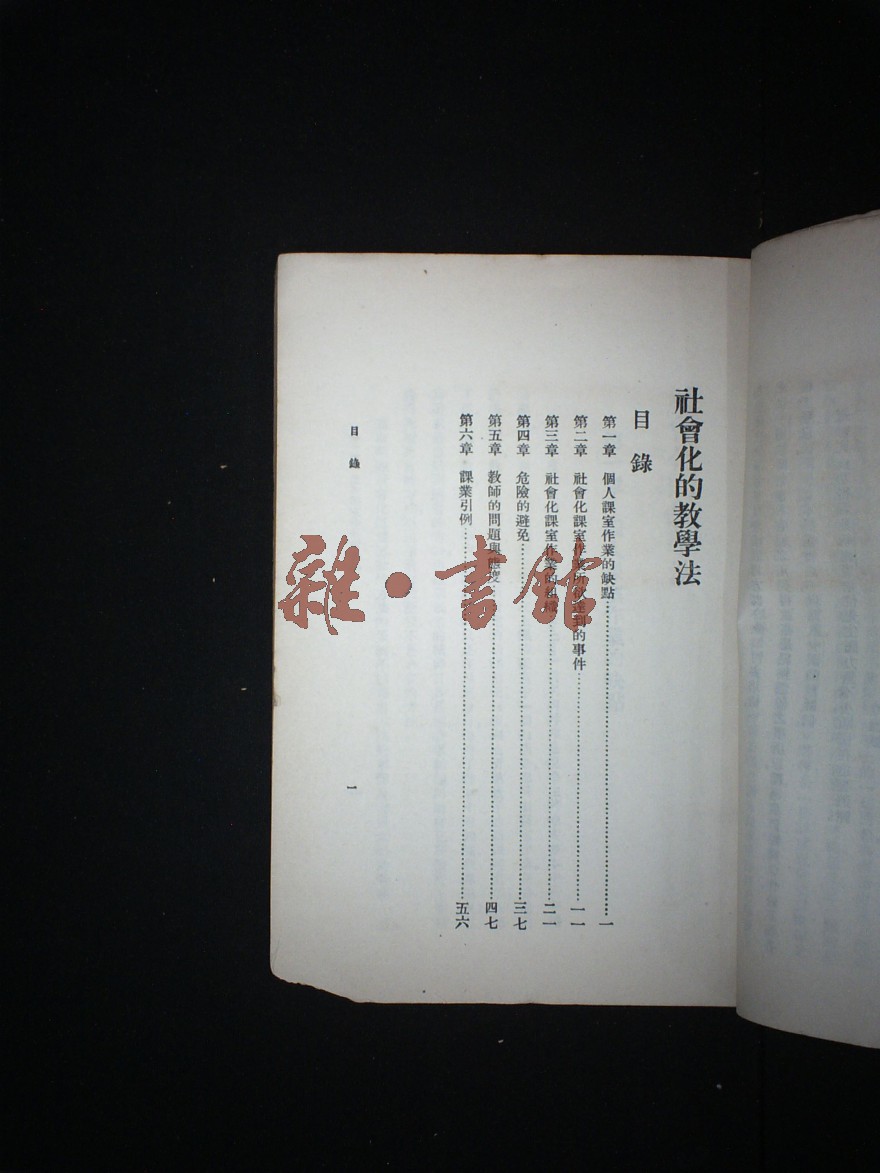 社會化的教學法
目錄
第一章 個人課室作業的缺點…………一
第二章 社會化課室作業所欲達到的事件…………一一
第三章 社會化課室作業的組織…………二一
第四章 危險的避免…………三七
第五章 教師的問題與態度…………四七
第六章 課業引例…………五六
目錄
一
雜·書館